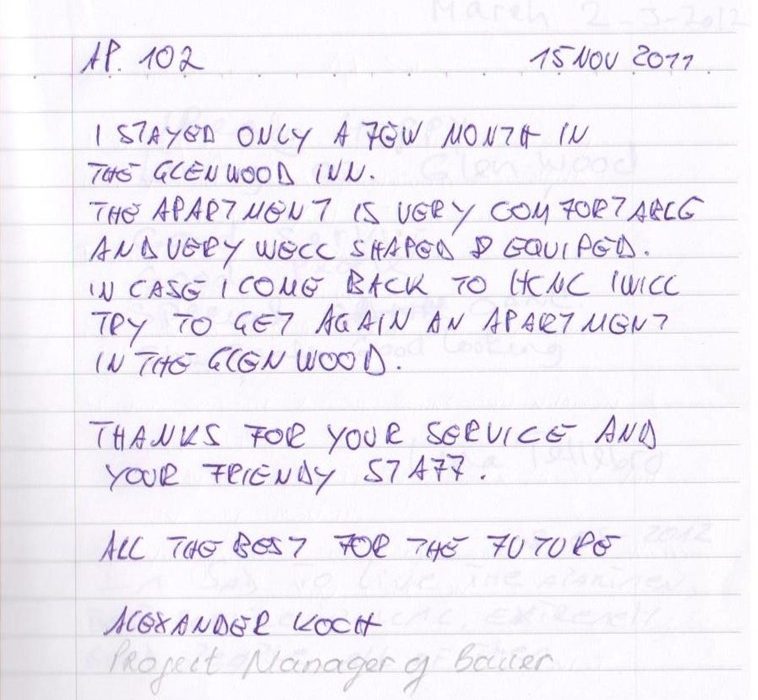 AP. 102 15 NOV 2011
I STAYED ONLY A FEW MONTH IN
THE GLENWOOD INN.
THE APARTMENT IS VERY COMFORTABLE
AND VERY WELL SHAPED & EQUIPED.
IN CASE I COME BACK TO HCMC I WILL
TRY TO GET AGAIN AN APARTMENT
IN THE GLENWOOD.
THANKS FOR YOUR SERVICE AND
YOUR FRIENDY STAFF.
ALL THE BEST FOR THE FUTURE
ALEXANDER KOCH
Project Manager of Bauer